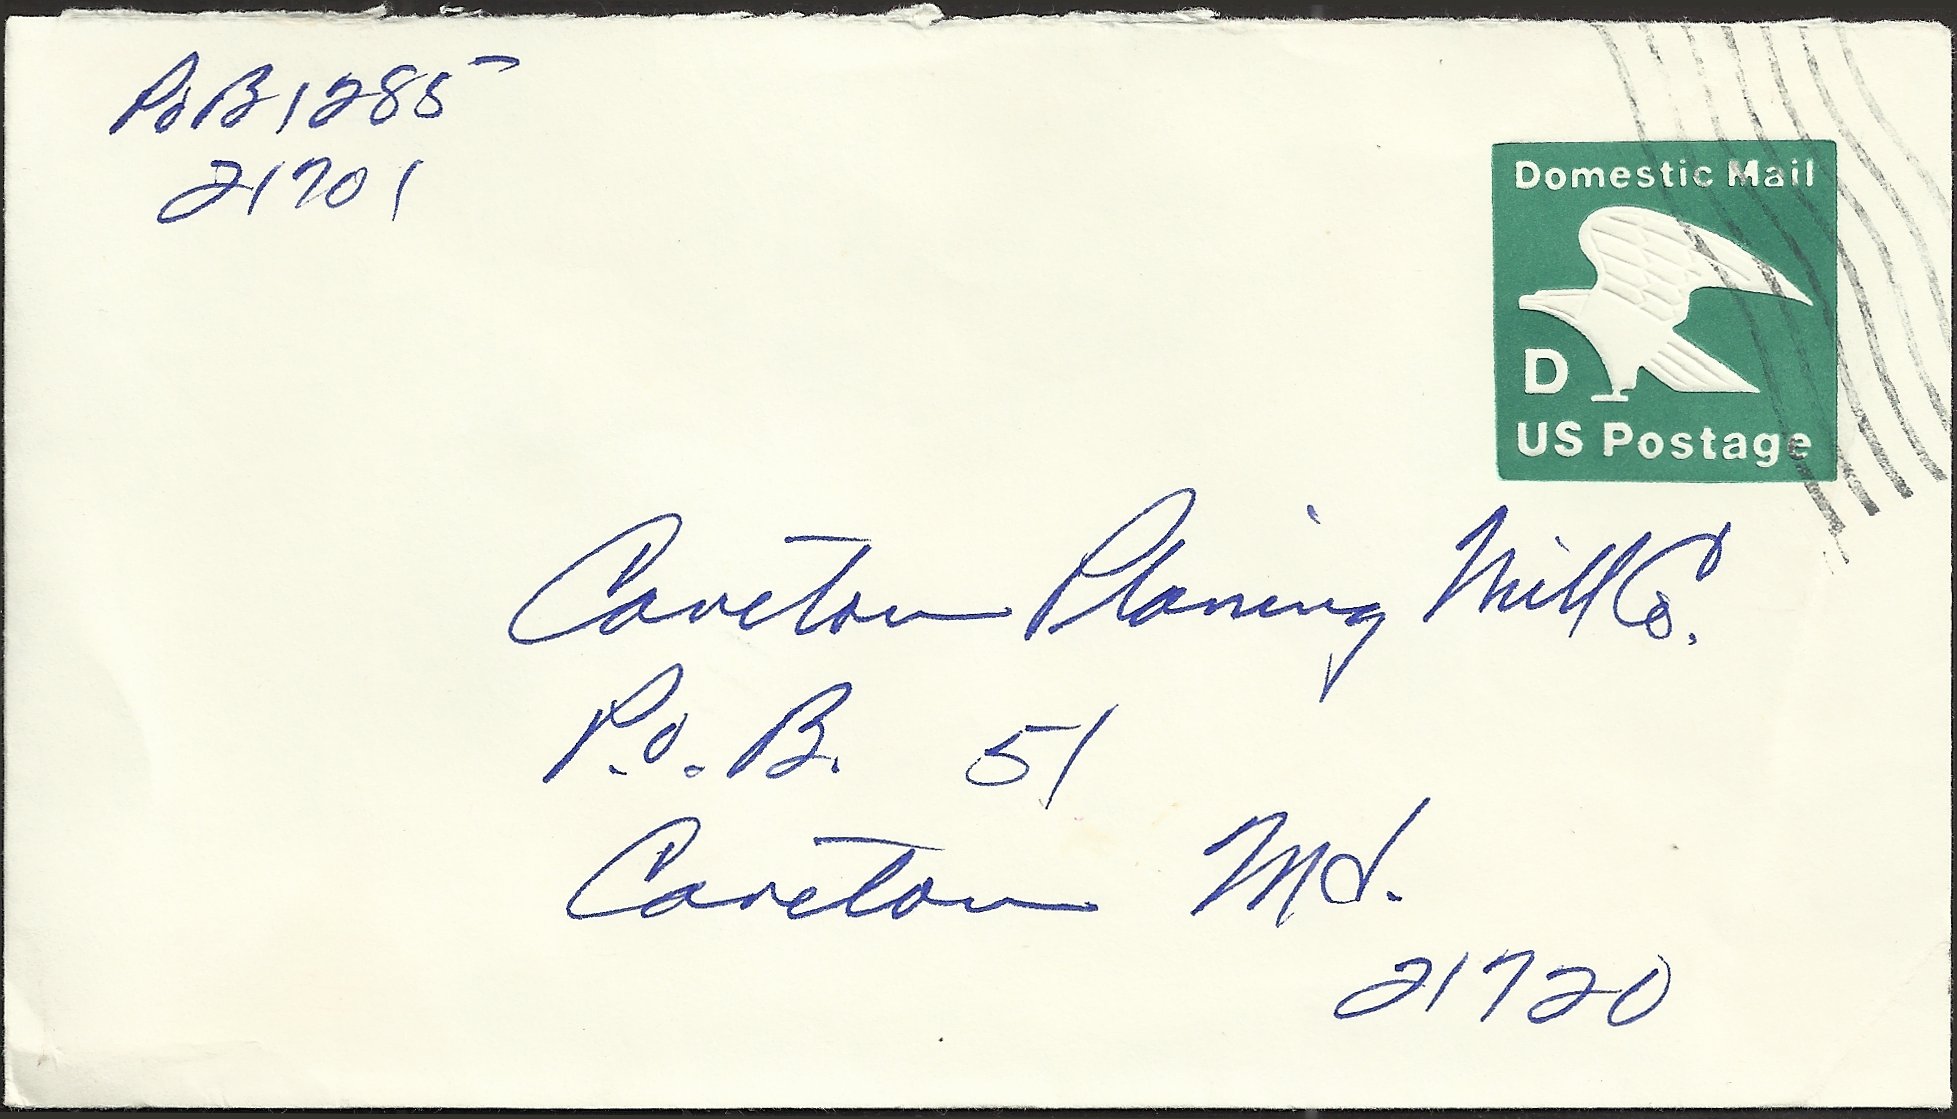 PoB 1285
21701
Domestic Mail
D
US Postage
Cavetown Planing Mill Co.
P.O. B. 51
Cavetown Md.
21720